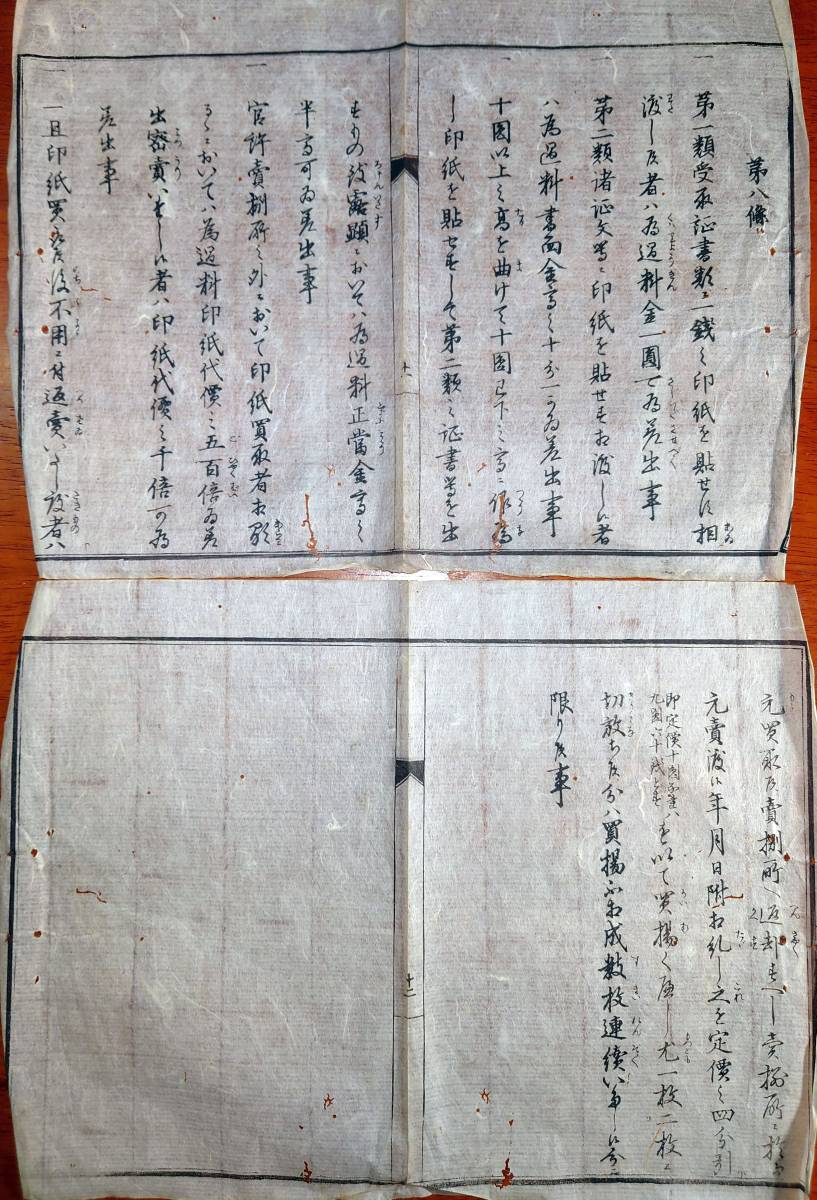 第八條
一 第一類受取証書類ニ一錢ノ印紙を貼せす相
渡し候者ハ為過料金一圓可為差出事
一 第二類諸証文等ニ印紙を貼せすお渡し候者
ハ為過料書面金高之十分一可為差出事
一 十圓以上之高を曲けて十圓已下之高ニ作為
し印紙を貼せすして第二類之証書等を出
すもの致露顕ニおいてハ為過料正當金高之
半高可為差出事
一 官許賣捌所之外ニおいて印紙買取者お顕
るゝにおいてハ為過料印紙代價之五百倍為差
出密賣いたし候者ハ印紙代價之千倍可為
差出事
一 一旦印紙買取候後不用ニ付返賣いたし度者ハ
十一
元買取候賣捌所へ返却すへし賣捌所ニ於而
元賣渡候年月日附お糺し之を定價之四分引
即定價十圓
九圓六十銭
を以て買揚く座し尤一枚二枚と
切放ち候分ハ買揚不お成數枚連續いたし候分ニ
限り候事
十二